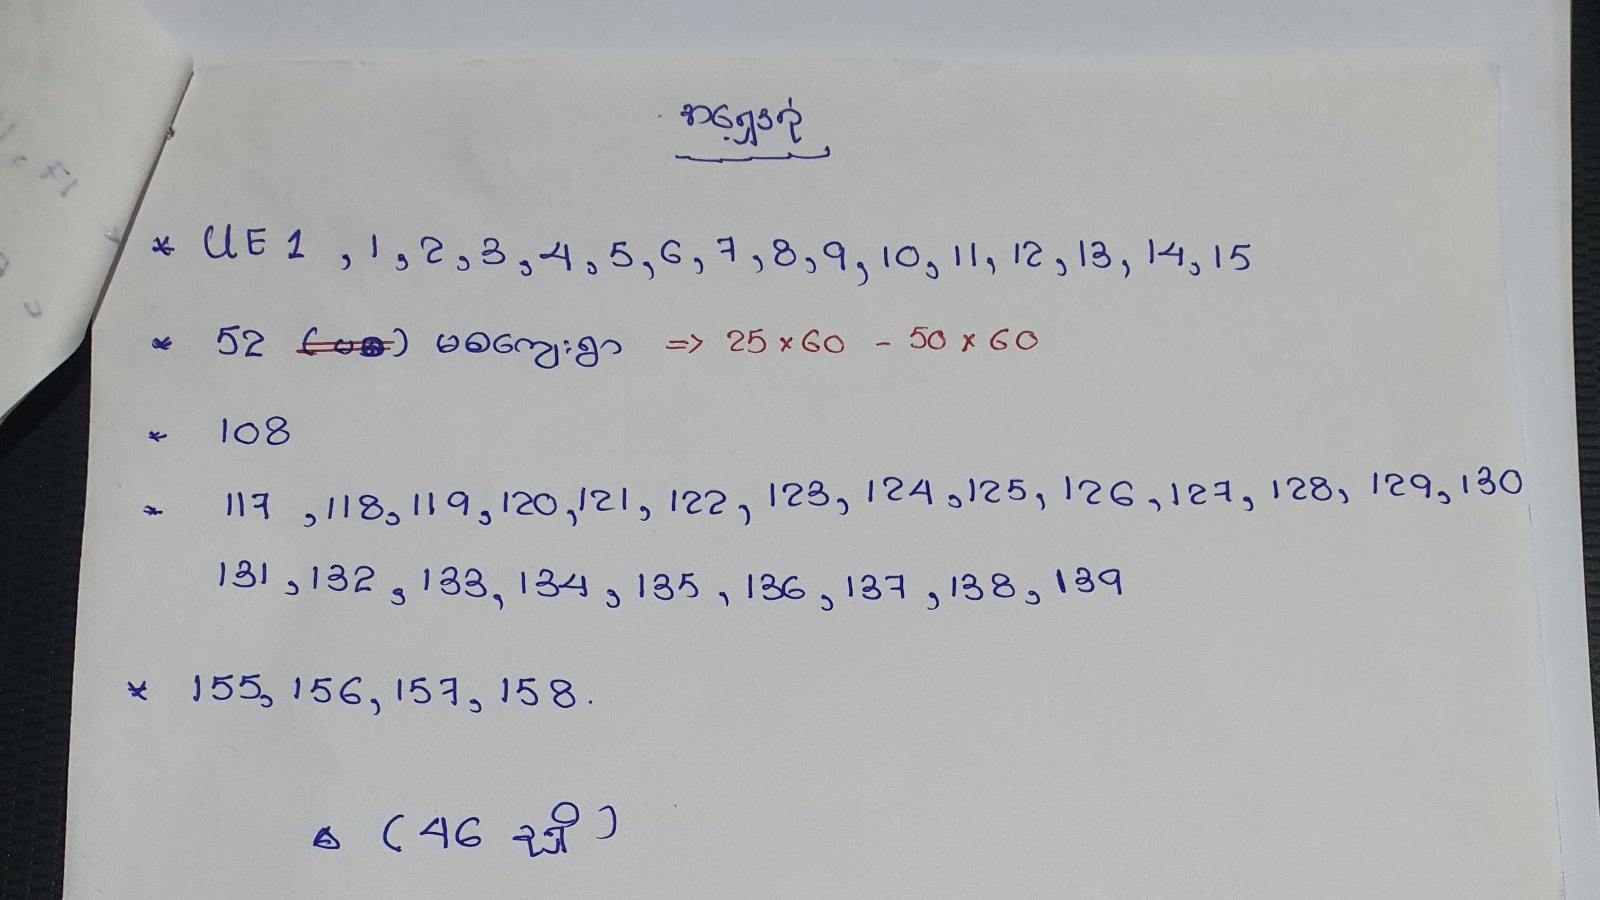 * UE 1 , 1, 2, 3, 4, 5, 6, 7, 8, 9, 10, 11, 12, 13, 14, 15
* 52 မစကျေးရွာ => 25 × 60 - 50 × 60
* 108
* 117 , 118, 119, 120, 121, 122, 123, 124, 125, 126, 127, 128, 129, 130
131, 132, 133, 134, 135, 136, 137, 138, 139
* 155, 156, 157, 158.
(46